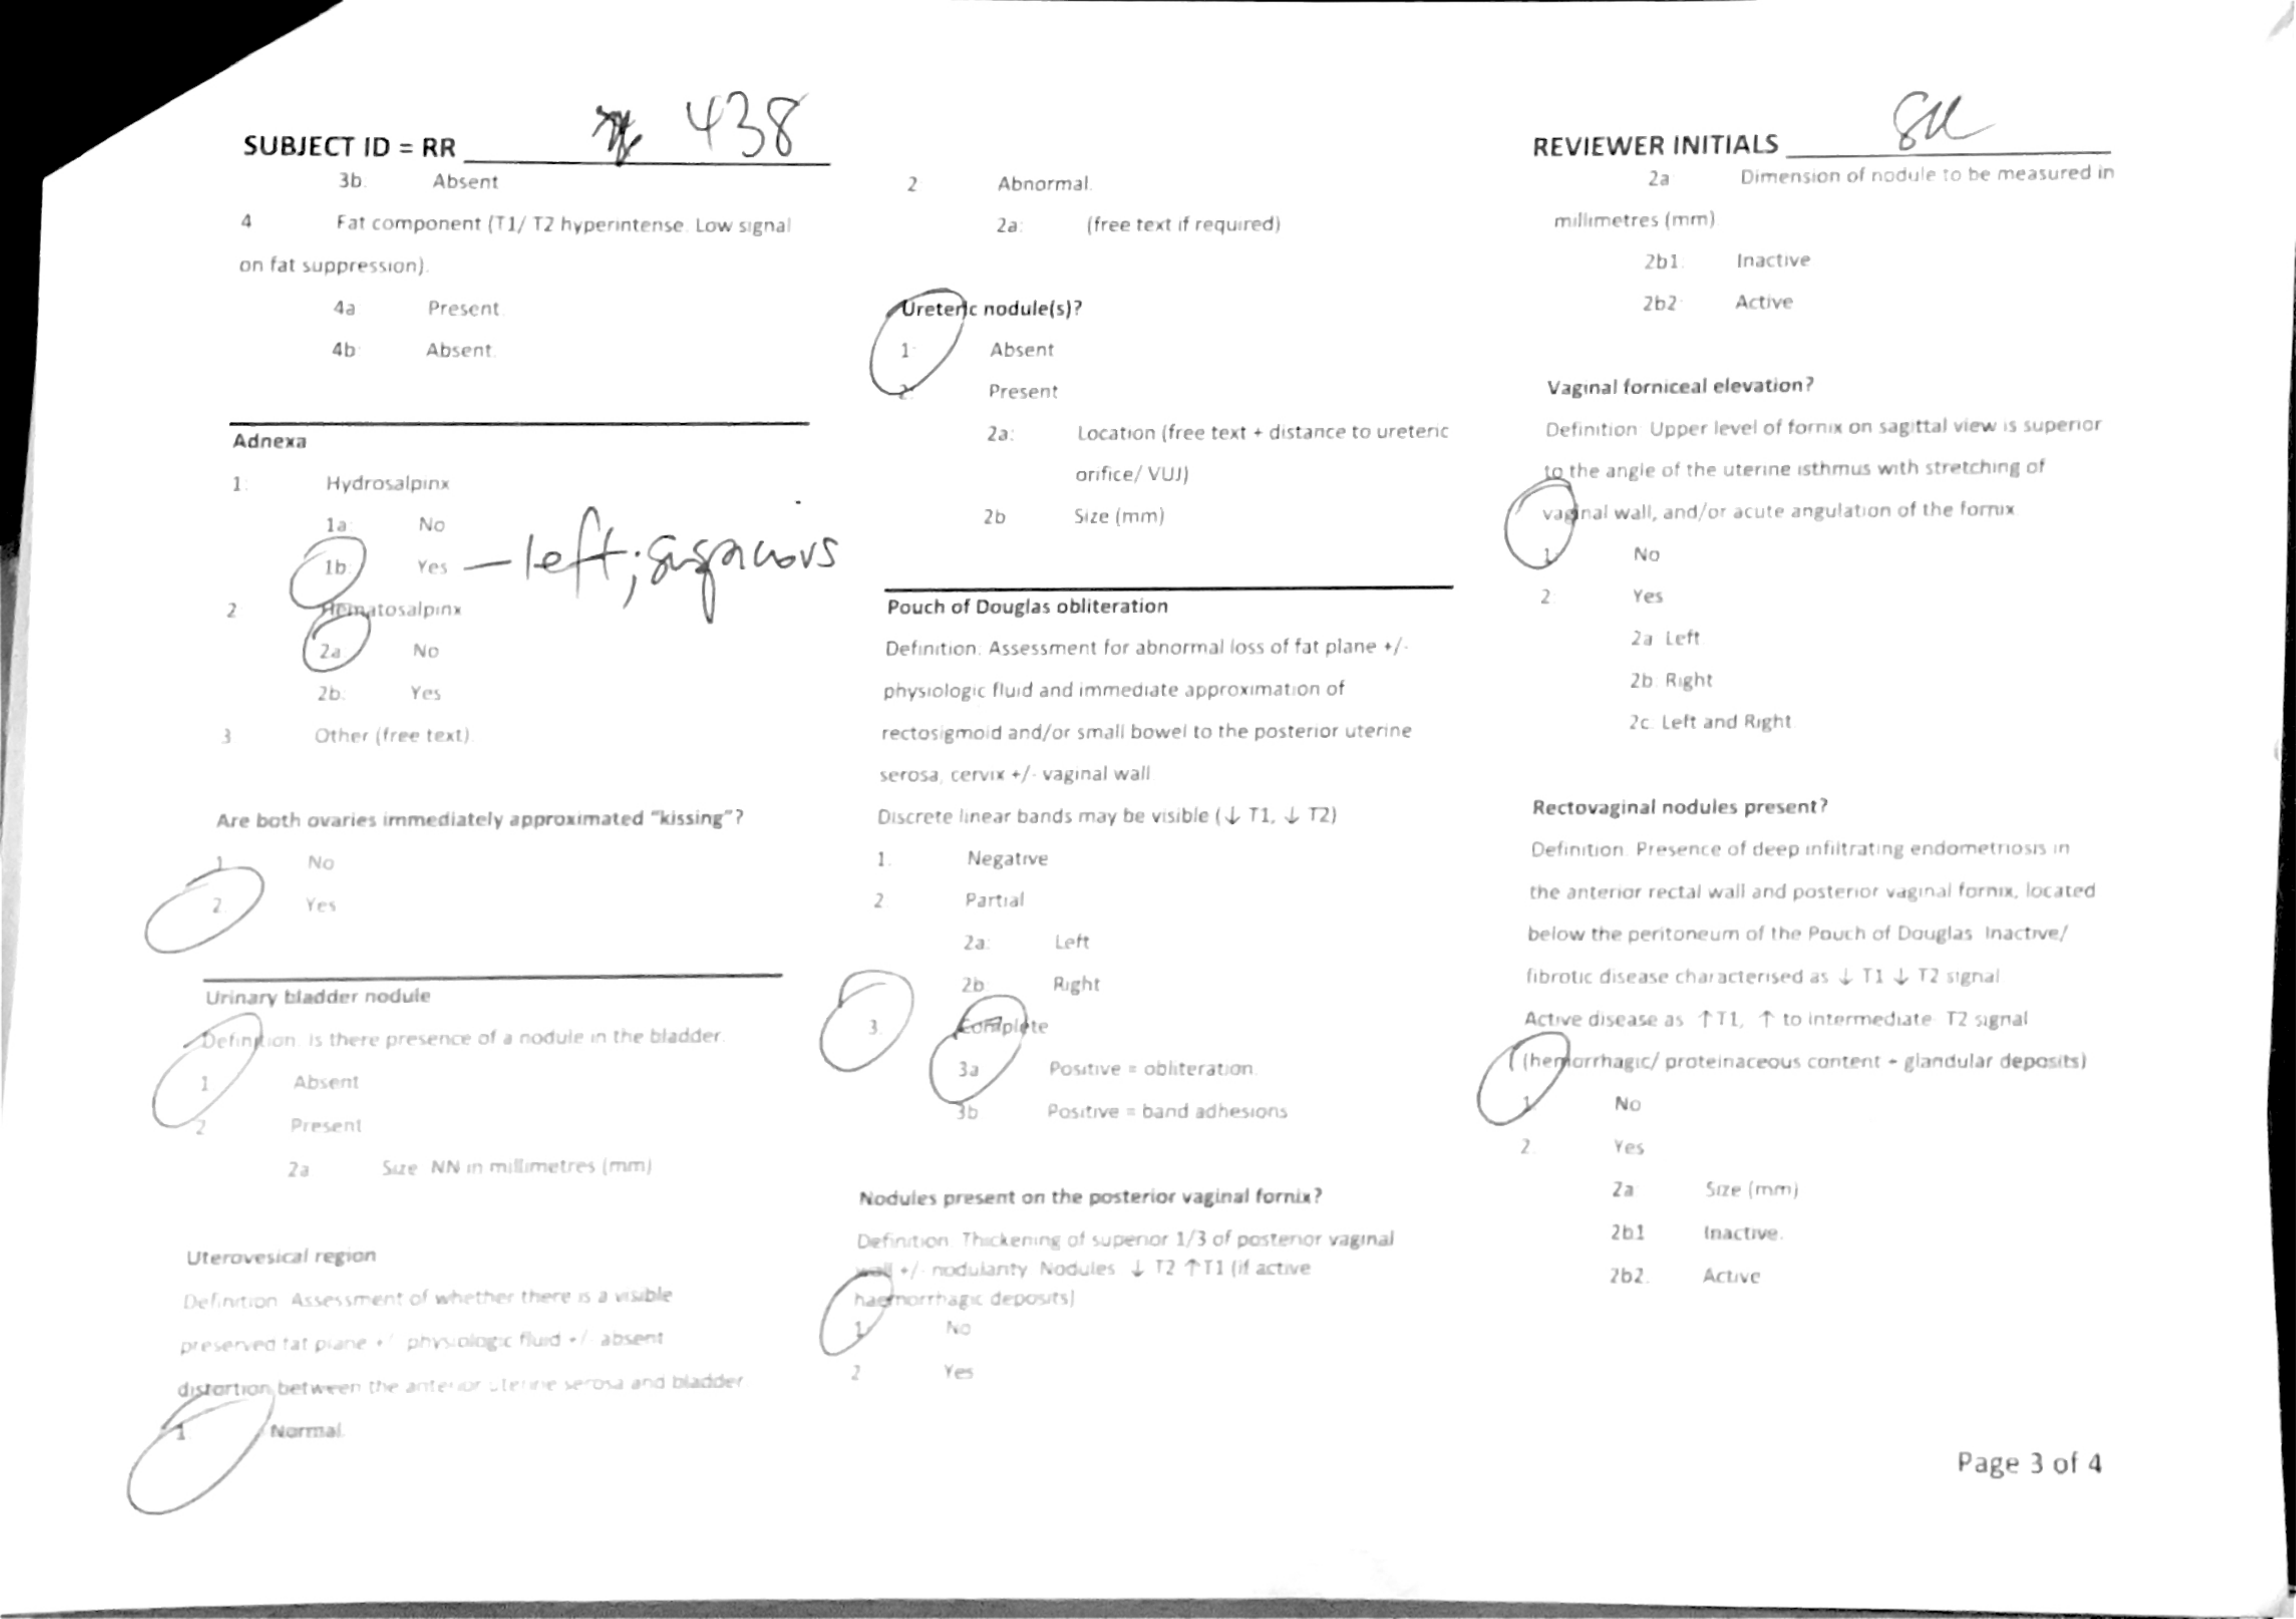 SUBJECT ID = RR 438
3b. Absent
4 Fat component (T1/ T2 hyperintense. Low signal
on fat suppression).
4a Present
4b Absent.
Adnexa
1: Hydrosalpinx
1a: No
1b Yes – left; suspicious
2 Hematosalpinx
2a No
2b: Yes
3 Other (free text).
Are both ovaries immediately approximated "kissing"?
1 No
2. Yes
Urinary bladder nodule
Definition: Is there presence of a nodule in the bladder.
1 Absent
2 Present
2a Size NN in millimetres (mm)
Uterovesical region
Definition: Assessment of whether there is a visible
preserved fat plane +/- physiologic fluid +/- absent
distortion between the anterior uterine serosa and bladder.
1 Normal.
2 Abnormal.
2a: (free text if required)
Ureteric nodule(s)?
1: Absent
2: Present
2a: Location (free text + distance to ureteric
orifice/ VUJ)
2b Size (mm)
Pouch of Douglas obliteration
Definition: Assessment for abnormal loss of fat plane +/-
physiologic fluid and immediate approximation of
rectosigmoid and/or small bowel to the posterior uterine
serosa, cervix +/- vaginal wall
Discrete linear bands may be visible (↓ T1, ↓ T2)
1. Negative
2 Partial
2a: Left
2b Right
3. Complete
3a Positive = obliteration.
3b Positive = band adhesions
Nodules present on the posterior vaginal fornix?
Definition: Thickening of superior 1/3 of posterior vaginal
wall +/- nodularity Nodules ↓ T2 ↑T1 (if active
haemorrhagic deposits)
1. No
2 Yes
REVIEWER INITIALS
2a Dimension of nodule to be measured in
millimetres (mm)
2b1. Inactive
2b2 Active
Vaginal forniceal elevation?
Definition: Upper level of fornix on sagittal view is superior
to the angle of the uterine isthmus with stretching of
vaginal wall, and/or acute angulation of the fornix.
1. No
2: Yes
2a Left
2b. Right
2c. Left and Right
Rectovaginal nodules present?
Definition. Presence of deep infiltrating endometriosis in
the anterior rectal wall and posterior vaginal fornix, located
below the peritoneum of the Pouch of Douglas Inactive/
fibrotic disease characterised as ↓ T1 ↓ T2 signal
Active disease as ↑T1, ↑ to intermediate T2 signal
(hemorrhagic/ proteinaceous content + glandular deposits)
1. No
2. Yes
2a Size (mm)
2b1 Inactive.
2b2. Active
Page 3 of 4